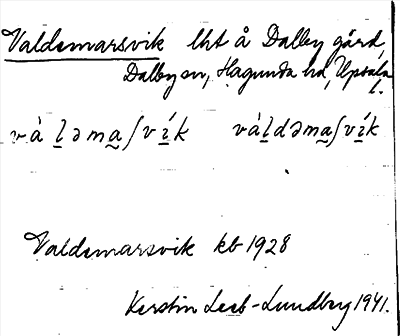 Valdemarsvik lht å Dalby gård,
Dalby sn, Hagunda hd, Upsala
l.
và l̠əma̰ʃvḭ́k   và l̠dəma̰ʃvḭ́k
Valdemarsvik kb 1928
Kerstin Leeb-Lundberg 1941.